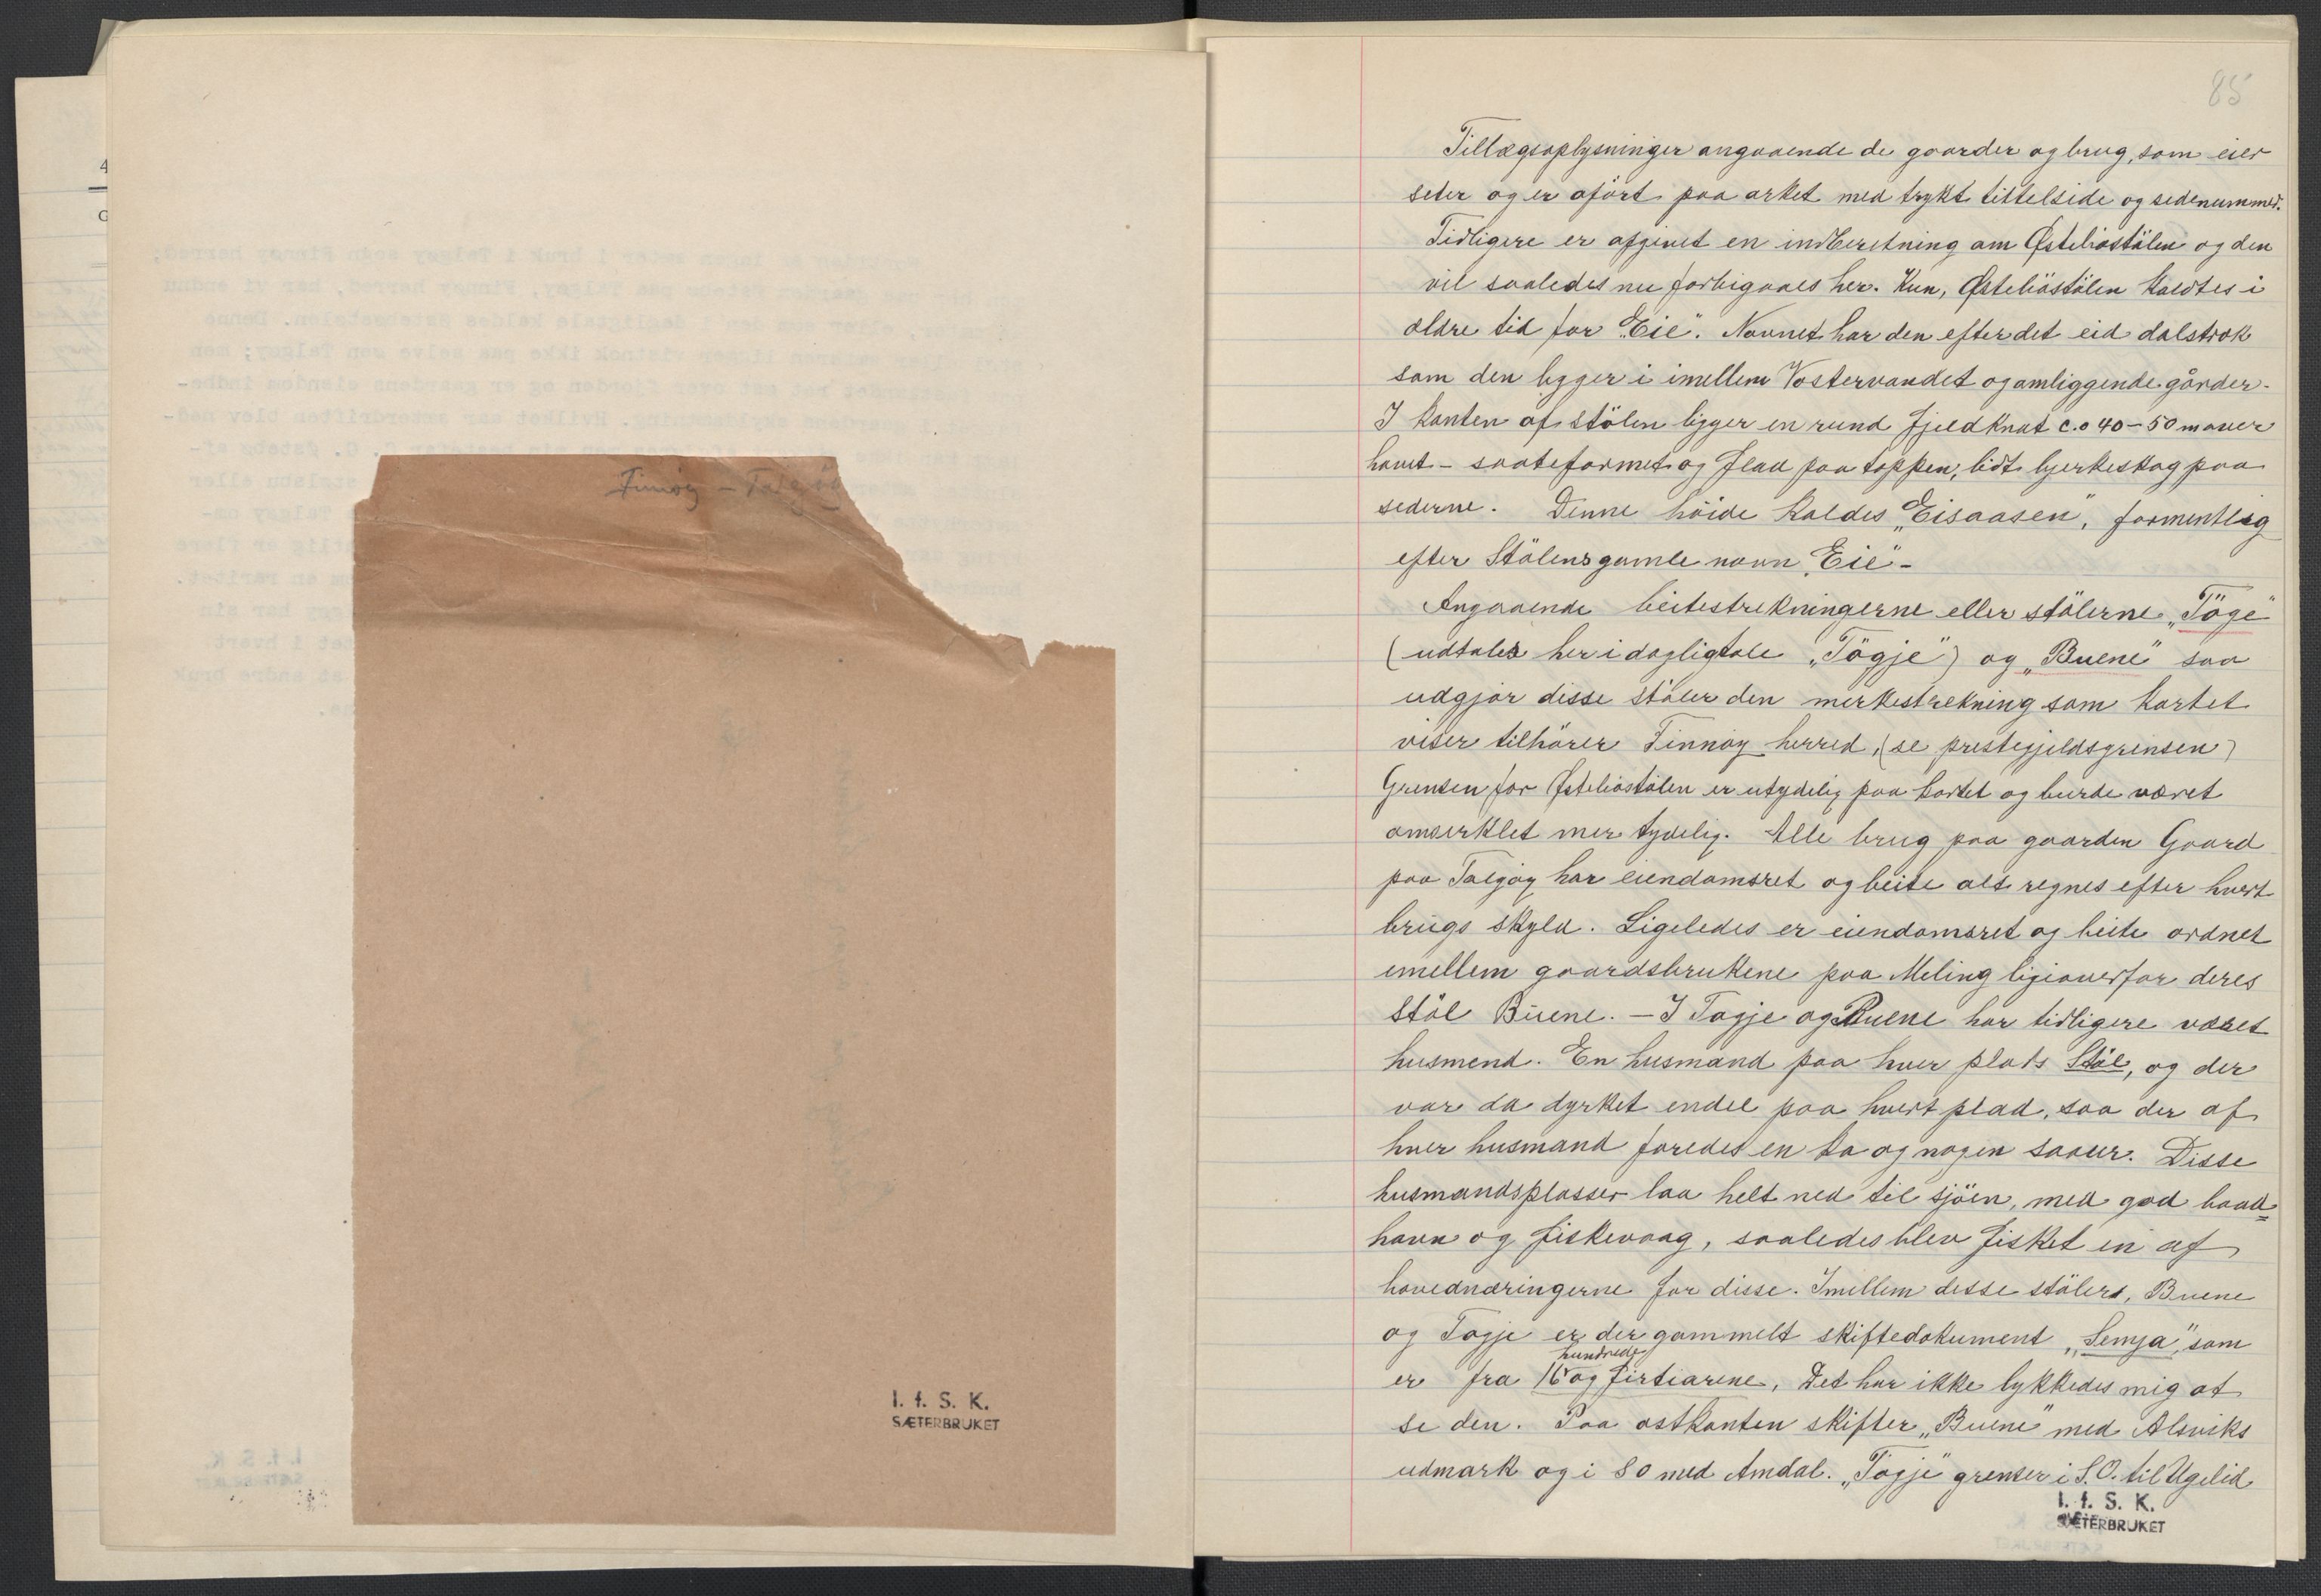 Finnöy - Talgöy
I. f. S. K.
SÆTERBRUKET
85
Tillægsoplysninger angaaende de gaarder og brug, som eier
seter og er ofört paa arket med trykt tittelside og sedenummer.
Tidligere er afgivet en indberetning om Østeböstölen og den
vil saaledes nu forbigaaes her. Kun, Østeböstölen kaldtes i
ældre tid for "Eie". Navnet har den efter det eid dalstrøk
som den ligger i imellem Vostervandet og omliggende gårder.
I kanten af stölen ligger en rund fjeldknat c.o 40-50 m over
havet - saateformet og flad paa toppen, lidt bjerkeskog paa
sederne. Denne höide kaldes "Eisaasen", formentlig
efter Stölens gamle navn "Eie" -
Angaaende beitestrekningerne eller stölerne "Töge"
(udtales her i dagligtale "Tögje") og "Buene" saa
udgjör disse stöler den merkestrekning som kartet
viser tilhörer Finnöy herred, (se prestegjeldsgrensen)
Grensen for Østeböstölen er utydelig paa kartet og burde været
omserklet mer tydelig. Alle brug paa gaarden Gaard
paa Talgöy har eiendomsret og beite alt regnes efter hvert
brugs skyld. Ligeledes er eiendomsret og beite ordnet
imellem gaardsbrukene paa Meling ligeoverfor deres
Stöl Buene. - I Togje og Buene har tidligere været
husmend. En husmand paa hver plats Stöl, og der
var da dyrket endel paa hvert plad, saa der af
hver husmand foredes en ko og nogen sauer. Disse
husmandsplasser laa helt ned til sjöen, med god baad=
havn og fiskevaag, saaledes blev fisket en af
hovednæringerne for disse. Imellem desse stölers, Buene
og Togje er der gammelt skiftedokument "Semja", som
hundrede
er fra 16 og firtiarene, Det har ikke lykkedes mig at
se den. Paa ostkanten skifter "Buene" med Alsviks
udmark og i SO med Amdal. "Togje" grenser i S.O. til Ugelid
I. f. S. K.
SÆTERBRUKET